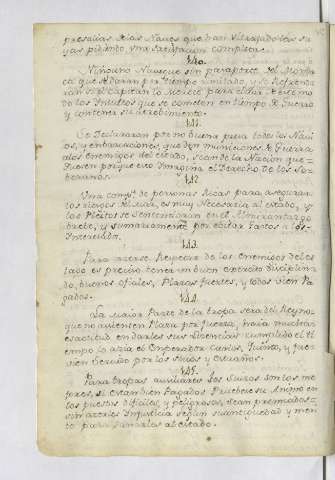 presalias de las Naves que han Ultrajado las su
yas pidiendo, una satisfacion completa.
140.
Ninguno Navegue sin pasaporte del Monar
ca que se daran por tiempo limitado, y se Refrenda
ran
de los Insultos que se cometen en tiempo de Guerra
y contener su atrevimiento.
141.
Se Declararan por no buena presa todos los Navi
os, y embarcaciones que den municiones de Guerra
a los enemigos del estado, sean de la Nacion que
fuesen porque esto Imagina el Derecho de los So
beranos.
142.
Una compª. de personas Ricas para asegurar
los riesgos del Mar, es muy Necesaria al estado, y
los Pleitos se Sentenciaran en el Almirantazgo
brebe, y sumariamente por evitar Gastos a los
Interesados.
143.
Para hacerse Respectar de los Enemigos del es
tado es preciso tener un buen exercito disciplina
do, buenos oficiales, Plazas fuertes, y todos vien Pa
gados.
144.
La maior Parte de la tropa sera del Reyno
que no asienten Plaza por fuerza, haia mucha
esactitud en darles sus Licencias cumplido el ti
empo lo hacia el Emperador Carlos Quinto, y fue
vien Servido por los suios y estraños.
145.
Para tropas auxiliares los Suizos son los me
jores, si estan bien Pagados Pruebese su Animo en
los puestos dificiles, y peligrosos, sean premiados
sin hacerles Injusticia segun su antiguedad y meri
to para ganarlos al estado.